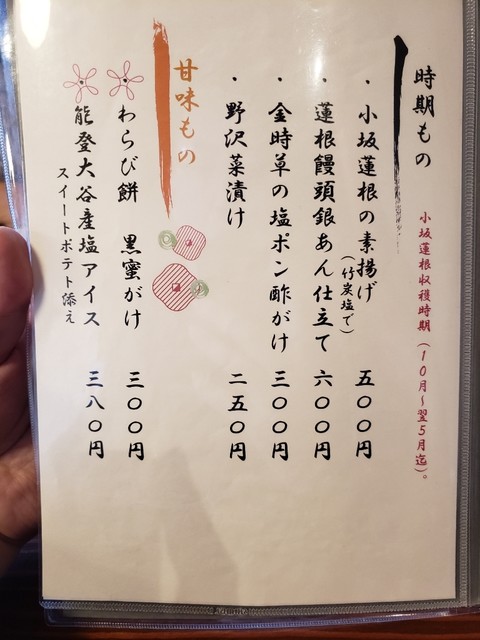 時期もの
小坂蓮根収穫時期(10月〜翌5月迄)。
・小坂蓮根の素揚げ(竹炭塩で) 五〇〇円
・蓮根饅頭銀あん仕立て 六〇〇円
・金時草の塩ポン酢がけ 三〇〇円
・野沢菜漬け 二五〇円
甘味もの
わらび餅 黒蜜がけ 三〇〇円
能登大谷産塩アイス 三八〇円
スイートポテト添え